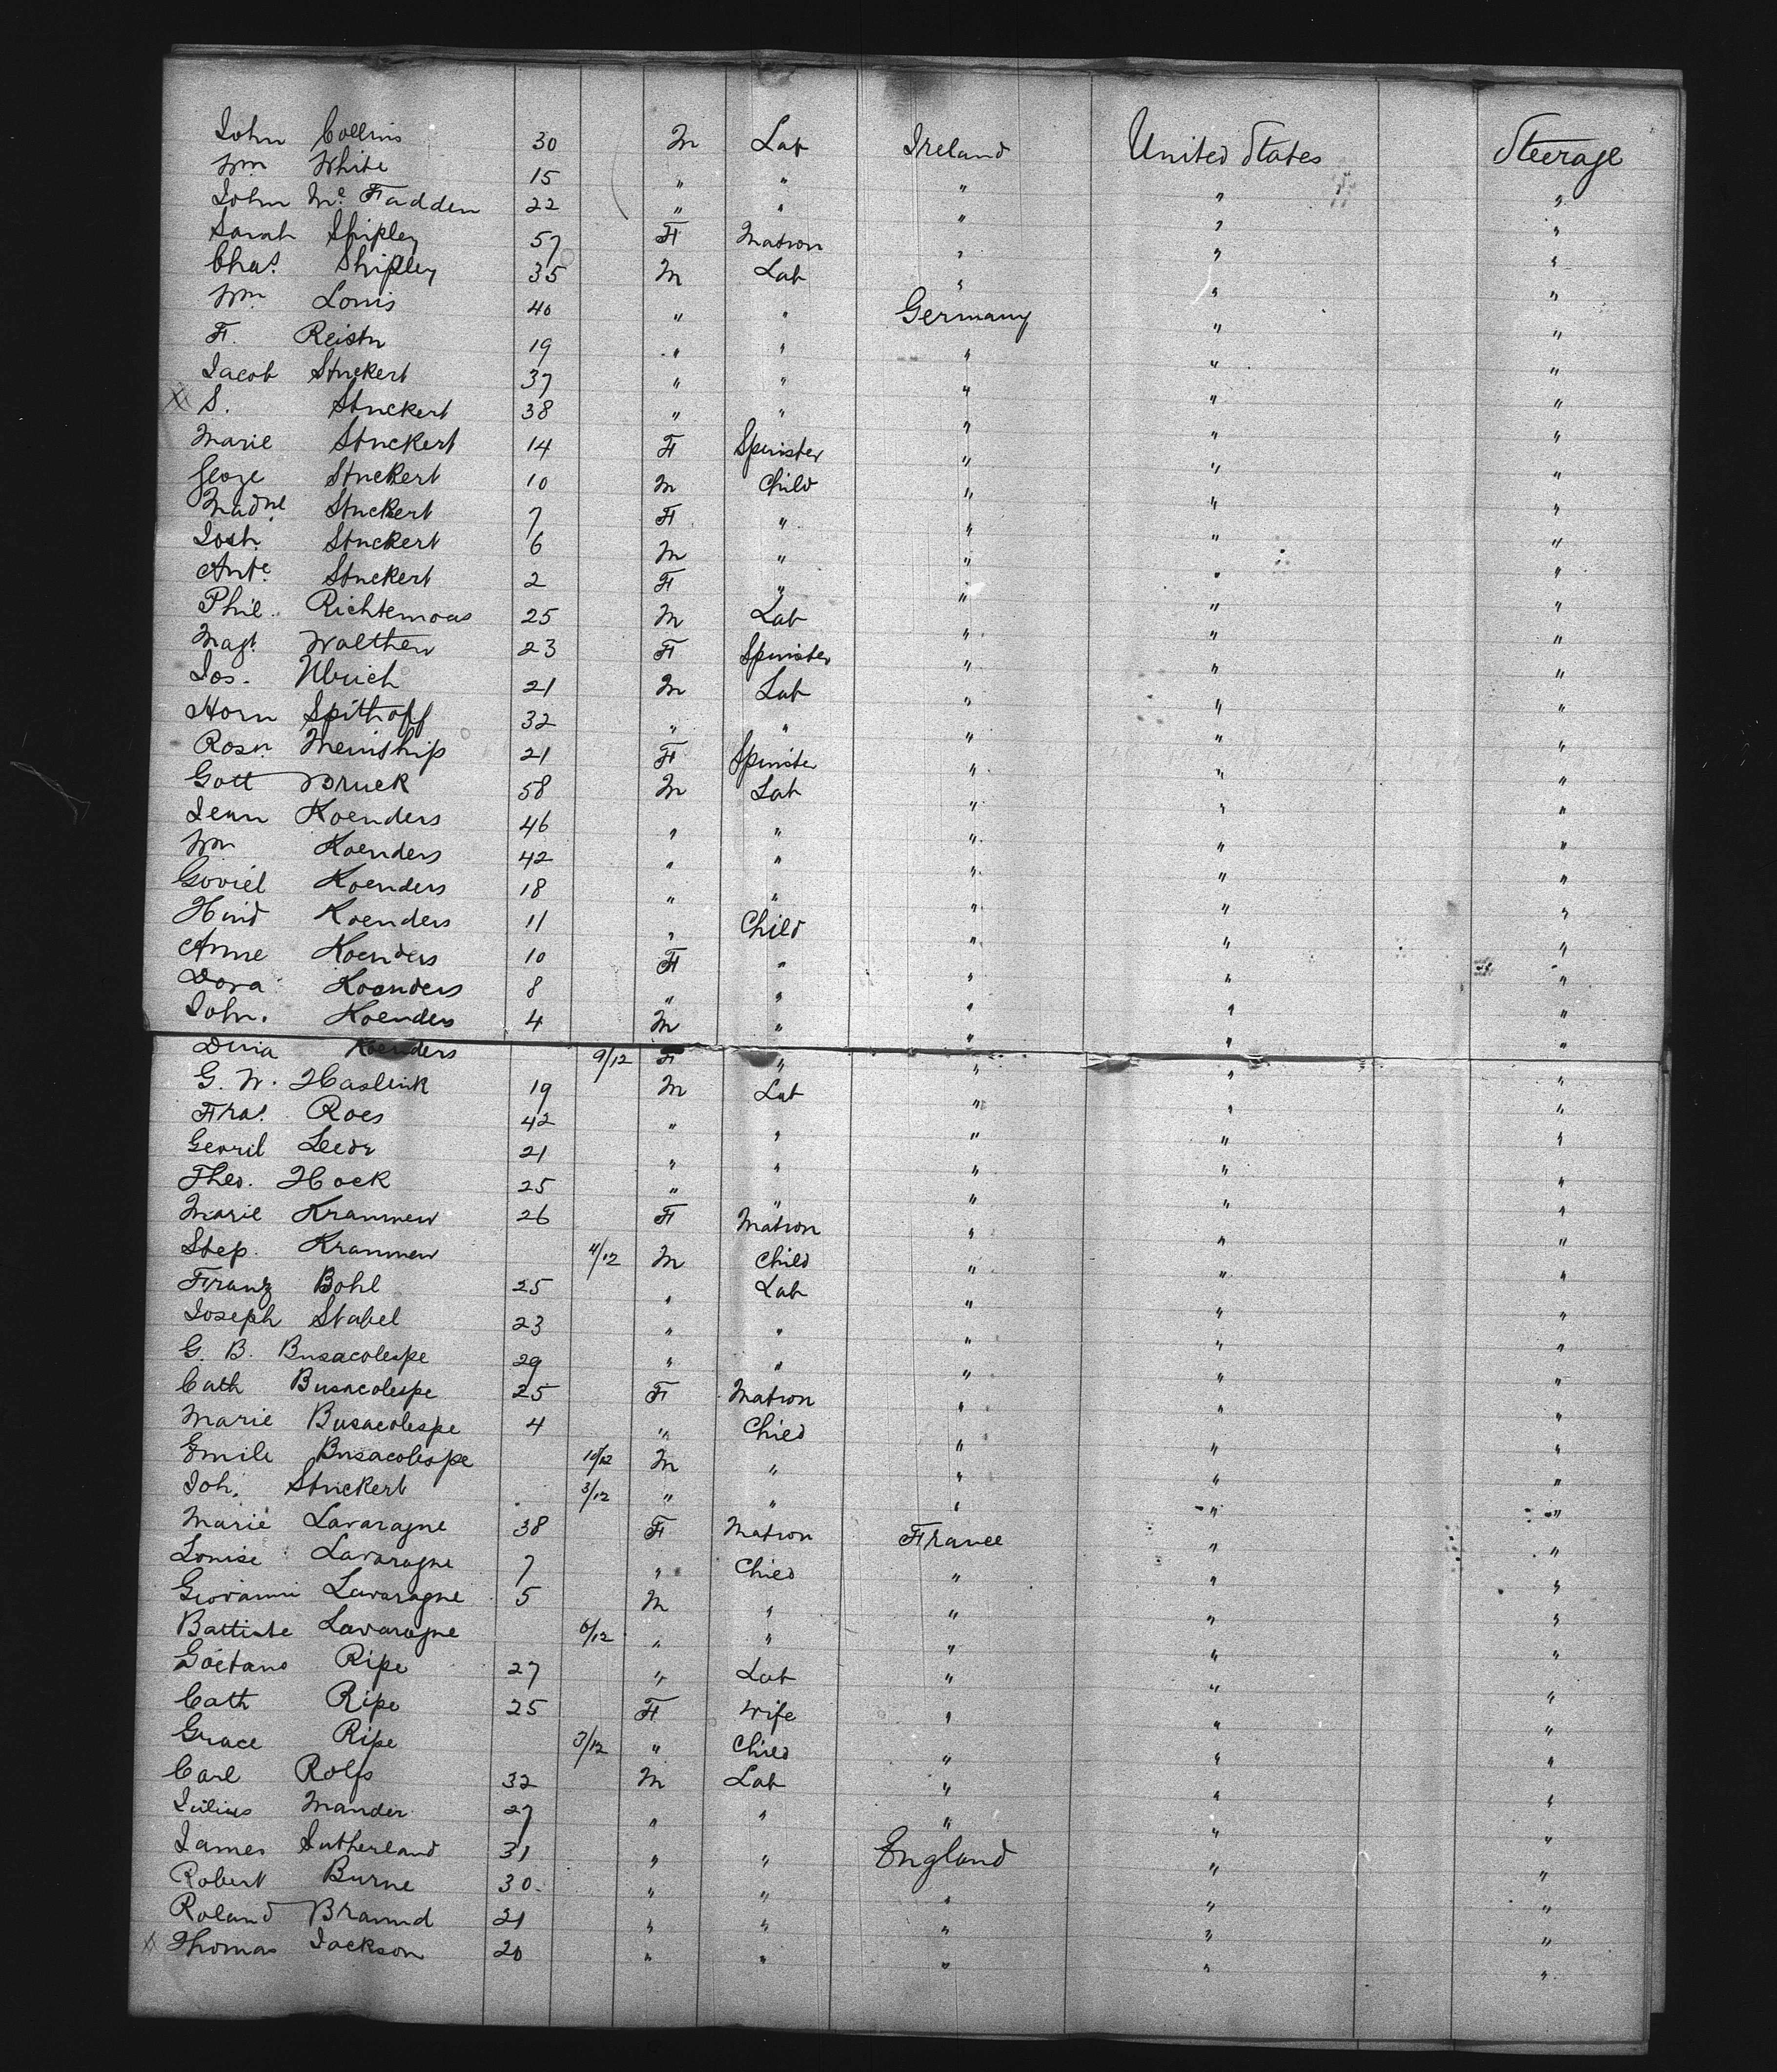 John Collins 30 M Lab Ireland United States Steerage
Wm White 15 " " " " "
John Mc Fadden 22 " " " " "
Sarah Shipley 57 F Matron " " "
Chas. Shipley 35 M Lab " " "
Wm Louis 40 " " Germany " "
F. Reistn 19 " " " " "
Jacob Stuckert 37 " " " " "
S. Stuckert 38 " " " " "
Marie Stuckert 14 F Spinster " " "
Geoze Stuckert 10 M Child " " "
Madne Stuckert 7 F " " " "
Josh. Stuckert 6 M " " " "
Ante. Stuckert 2 F " " " "
Phil. Richtemoas 25 M Lab " " "
Magt. Walthew 23 F Spinster " " "
Jos. Ulrich 21 M Lab " " "
Horn Spithoff 32 " " " " "
Rosn Meinship 21 F Spinster " " "
Gott Bruck 58 M Lab " " "
Jean Koenders 46 " " " " "
Wm Koenders 42 " " " " "
Goviel Koenders 18 " " " " "
Hind Koenders 11 " Child " " "
Anne Koenders 10 F " " " "
Dora Koenders 8 " " " " "
John. Koenders 4 M " " " "
Dina Koenders 9/12 F " " " "
G. W. Haslink 19 M Lab " " "
Fras. Roes 42 " " " " "
Georil Leedr 21 " " " " "
Theo. Hock 25 " " " " "
Marie Krammew 26 F Matron " " "
Step. Krammew 4/12 M Child " " "
Franz Bohl 25 " Lab " " "
Joseph Stabel 23 " " " " "
G. B. Busacolespe 29 " " " " "
Cath Busacolespe 25 F Matron " " "
Marie Busacolespe 4 " Child " " "
Emile Busacolespe 10/12 M " " " "
Joh. Stuckert 3/12 " " " " "
Marie Lavaragne 38 F Matron France " "
Louise Lavaragne 7 " Child " " "
Giovanni Lavaragne 5 M " " " "
Battiste Lavaragne 6/12 " " " " "
Goetano Ripe 27 " Lab " " "
Cath Ripe 25 F Wife " " "
Grace Ripe 3/12 " Child " " "
Carl Rolfs 32 M Lab " " "
Julius Mander 27 " " " " "
James Sutherland 31 " " England " "
Robert Burne 30 " " " " "
Roland Braund 21 " " " " "
Thomas Jackson 20 " " " " "